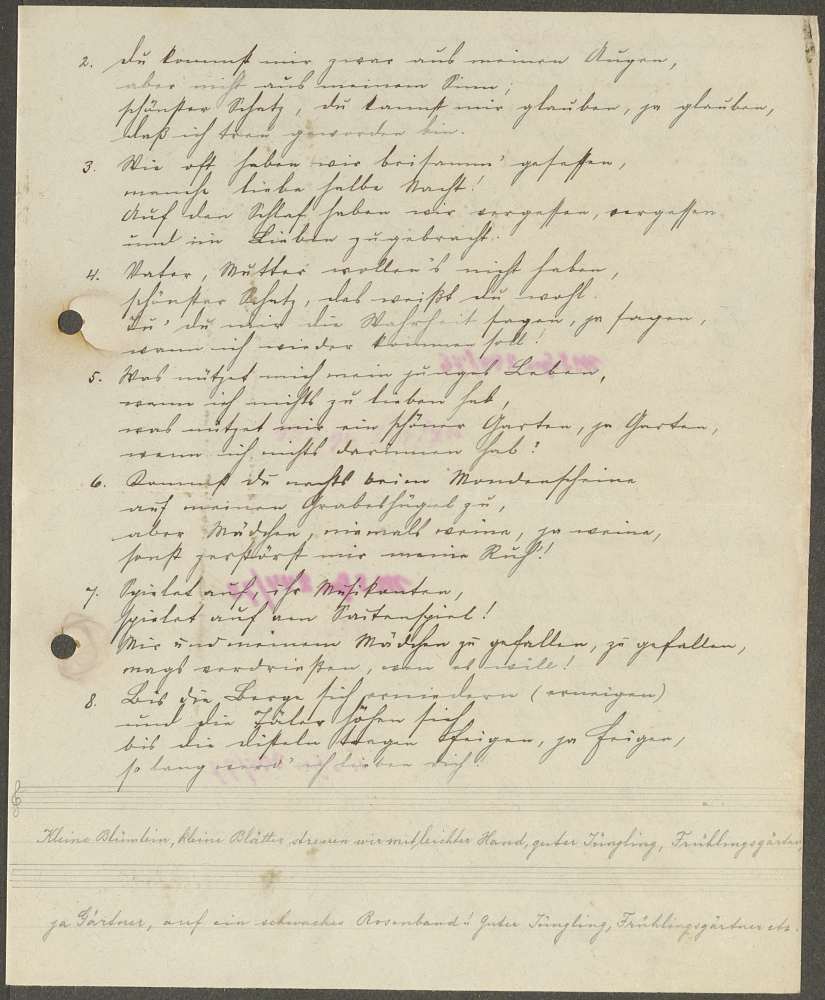 2. Du kommst mir zwar aus meinen Augen,
aber nicht aus meinem Sinn;
schönster Schatz, du kannst mir glauben, ja glauben,
daß ich treu geworden bin.
3. Wie oft haben wir beisamm' gesessen,
manche liebe halbe Nacht!
Auf den Schlaf haben wir vergessen, vergessen
und im Lieben zugebracht.
4. Vater, Mutter wollen's nicht haben,
schönster Schatz, das weißt du wohl.
Tu' du mir die Wahrheit sagen, ja sagen,
wann ich wieder kommen soll!
5. Was nützet mich mein junges Leben,
wenn ich nichts zu lieben hab,
was nützet mir ein schöner Garten, ja Garten,
wenn ich nichts darinnen hab?
6. Kommst du nachts beim Mondenscheine
auf meinen Grabeshügel zu,
aber Mädchen, niemals weine, ja weine,
sonst zerstörst mir meine Ruh'!
7. Spielet auf, ihr Musikanten,
spielet auf ein Saitenspiel!
Mir und meinem Mädchen zu gefallen, zu gefallen,
mags verdrießen, wen es will!
8. Bis die Berge sich erniedern (erneigen)
und die Täler höhen sich
bis die Disteln tragen Feigen, ja Feigen,
so lang werd' ich lieben dich!
Kleine Blümlein, kleine Blätter streuen wir mit leichter Hand, guter Jüngling, Frühlingsgärtner,
ja Gärtner, auf ein schwaches Rosenband! Guter Jüngling, Frühlingsgärtner etc.